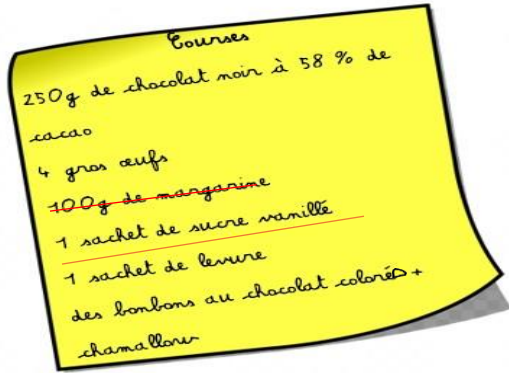 Courses
250g de chocolat noir à 58 % de
cacao
4 gros œufs
100g de margarine
1 sachet de sucre vanillé
1 sachet de levure
des bonbons au chocolat colorés +
chamallow